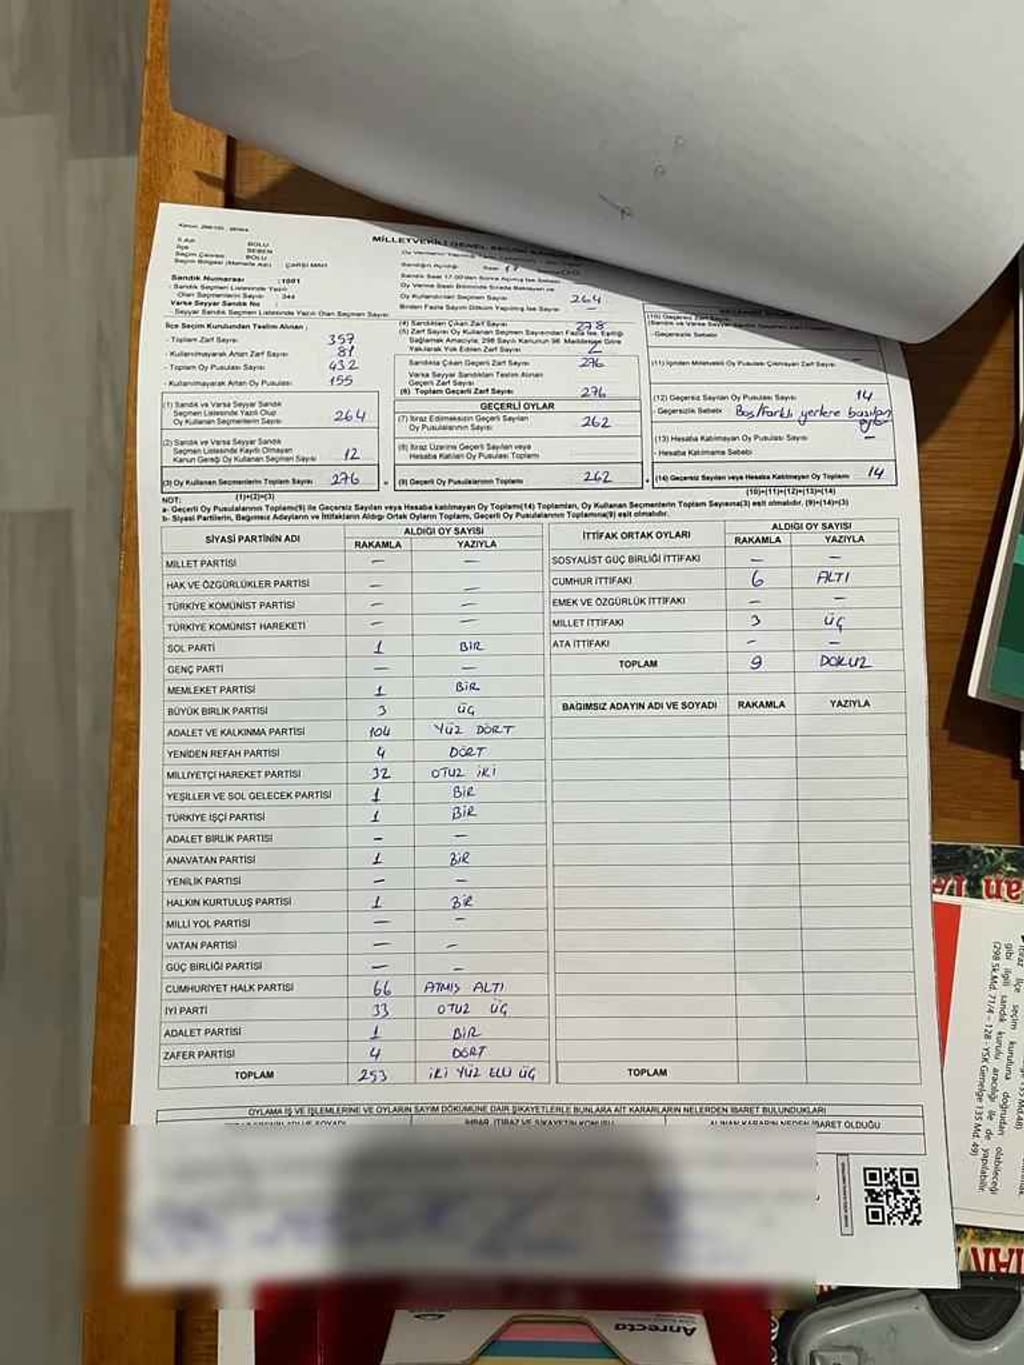 İl Adı : BOLU
İlçe : SEBEN
Seçim Çevresi : BOLU
Seçim Bölgesi (Mahalle Adı) : ÇARŞI MAH.
MİLLETVEKİLİ GENEL SEÇİMİ
Sandık Numarası : 1001
- Sandık Seçmen Listesinde Yazılı
Olan Seçmenlerin Sayısı : 344
Varsa Seyyar Sandık No :
- Seyyar Sandık Seçmen Listesinde Yazılı Olan Seçmen Sayısı
Oy Kullandırılan Seçmen Sayısı 264
İlçe Seçim Kurulundan Teslim Alınan :
- Toplam Zarf Sayısı 357
- Kullanılmayarak Artan Zarf Sayısı 81
- Toplam Oy Pusulası Sayısı 432
- Kullanılmayarak Artan Oy Pusulası 155
(1) Sandık ve Varsa Seyyar Sandık
Seçmen Listesinde Yazılı Olup
Oy Kullanan Seçmenlerin Sayısı 264
(2) Sandık ve Varsa Seyyar Sandık
Seçmen Listesinde Kaydı Olmayan
Kanun Gereği Oy Kullanan Seçmen Sayısı 12
(3) Oy Kullanan Seçmenlerin Toplam Sayısı 276
(1)+(2)=(3)
(4) Sandıktan Çıkan Zarf Sayısı 278
(5) Zarf Sayısı Oy Kullanan Seçmen Sayısından Fazla İse, Eşitliği
Sağlamak Amacıyla, 298 Sayılı Kanunun 98. Maddesine Göre
Yakılarak Yok Edilen Zarf Sayısı 2
Sandıkta Çıkan Geçerli Zarf Sayısı 276
Varsa Seyyar Sandıktan Teslim Alınan
Geçerli Zarf Sayısı
(6) Toplam Geçerli Zarf Sayısı 276
GEÇERLİ OYLAR
(7) İtiraz Edilmeksizin Geçerli Sayılan
Oy Pusulalarının Sayısı 262
(8) İtiraz Üzerine Geçerli Sayılan veya
Hesaba Katılan Oy Pusulası Toplamı
(9) Geçerli Oy Pusulalarının Toplamı 262
- Geçersizlik Sebebi
(11) İçinden Milletvekili Oy Pusulası Çıkmayan Zarf Sayısı
(12) Geçersiz Oy Pusulası Sayısı 14
- Geçersizlik Sebebi : Boş/Farklı yerlere basılan oylar
(13) Hesaba Katılmayan Oy Pusulası Sayısı —
- Hesaba Katılmama Sebebi
(14) Geçersiz Sayılan veya Hesaba Katılmayan Oy Toplamı 14
(10)+(11)+(12)+(13)=(14)
NOT:
a- Geçerli Oy Pusulalarının Toplamı(9) ile Geçersiz Sayılan veya Hesaba katılmayan Oy Toplamı(14) Toplamları, Oy Kullanan Seçmenlerin Toplam Sayısına(3) eşit olmalıdır. (9)+(14)=(3)
b- Siyasi Partilerin, Bağımsız Adayların ve İttifakların Aldığı Ortak Oyların Toplamı, Geçerli Oy Pusulalarının Toplamına(9) eşit olmalıdır.
SİYASİ PARTİNİN ADI ALDIĞI OY SAYISI
RAKAMLA YAZIYLA
MİLLET PARTİSİ — —
HAK VE ÖZGÜRLÜKLER PARTİSİ — —
TÜRKİYE KOMÜNİST PARTİSİ — —
TÜRKİYE KOMÜNİST HAREKETİ — —
SOL PARTİ 1 BİR
GENÇ PARTİ — —
MEMLEKET PARTİSİ 1 BİR
BÜYÜK BİRLİK PARTİSİ 3 ÜÇ
ADALET VE KALKINMA PARTİSİ 104 YÜZ DÖRT
YENİDEN REFAH PARTİSİ 4 DÖRT
MİLLİYETÇİ HAREKET PARTİSİ 32 OTUZ İKİ
YEŞİLLER VE SOL GELECEK PARTİSİ 1 BİR
TÜRKİYE İŞÇİ PARTİSİ 1 BİR
ADALET BİRLİK PARTİSİ — —
ANAVATAN PARTİSİ 1 BİR
YENİLİK PARTİSİ — —
HALKIN KURTULUŞ PARTİSİ 1 BİR
MİLLİ YOL PARTİSİ — —
VATAN PARTİSİ — —
GÜÇ BİRLİĞİ PARTİSİ — —
CUMHURİYET HALK PARTİSİ 66 ATMIŞ ALTI
İYİ PARTİ 33 OTUZ ÜÇ
ADALET PARTİSİ 1 BİR
ZAFER PARTİSİ 4 DÖRT
TOPLAM 253 İKİ YÜZ ELLİ ÜÇ
İTTİFAK ORTAK OYLARI ALDIĞI OY SAYISI
RAKAMLA YAZIYLA
SOSYALİST GÜÇ BİRLİĞİ İTTİFAKI — —
CUMHUR İTTİFAKI 6 ALTI
EMEK VE ÖZGÜRLÜK İTTİFAKI — —
MİLLET İTTİFAKI 3 ÜÇ
ATA İTTİFAKI — —
TOPLAM 9 DOKUZ
BAĞIMSIZ ADAYIN ADI VE SOYADI RAKAMLA YAZIYLA
TOPLAM
OYLAMA İŞ VE İŞLEMLERİNE VE OYLARIN SAYIM DÖKÜMÜNE DAİR ŞİKAYETLERLE BUNLARA AİT KARARLARIN NELERDEN İBARET BULUNDUKLARI
İHBAR, İTİRAZ VE ŞİKAYETİN KONUSU
ALINAN KARARIN NEDEN İBARET OLDUĞU
itiraz ilçe seçim kuruluna doğrudan olabileceği
gibi ilgili sandık kurulu aracılığı ile de yapılabilir.
(298 Sk.Md. 71/4 - 128 - YSK Genelge 135 Md. 49)
Anrecta